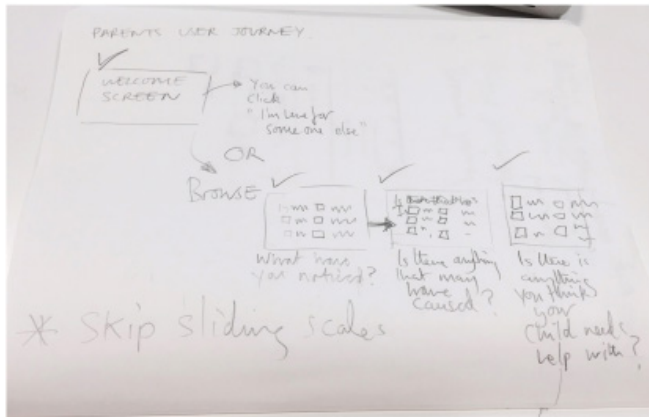 PARENTS USER JOURNEY
WELCOME
SCREEN
You can
click
"I'm here for
someone else"
OR
BROWSE
What have
you noticed?
Is there anything
that may
have
caused?
Is there is
anything
you think
your
child needs
help with?
* Skip sliding scales